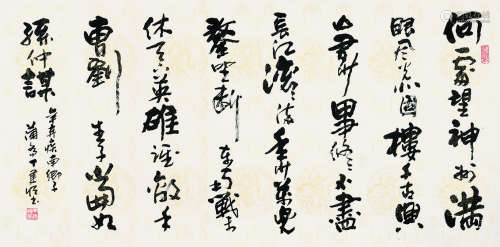 何處望神州滿
眼風光北固樓千古興
亡多少事悠悠不盡
長江滾滾流年少萬兜
鍪坐斷東南戰未
休天下英雄誰敵手
曹劉生子當如
孫仲謀
辛棄疾南鄉子